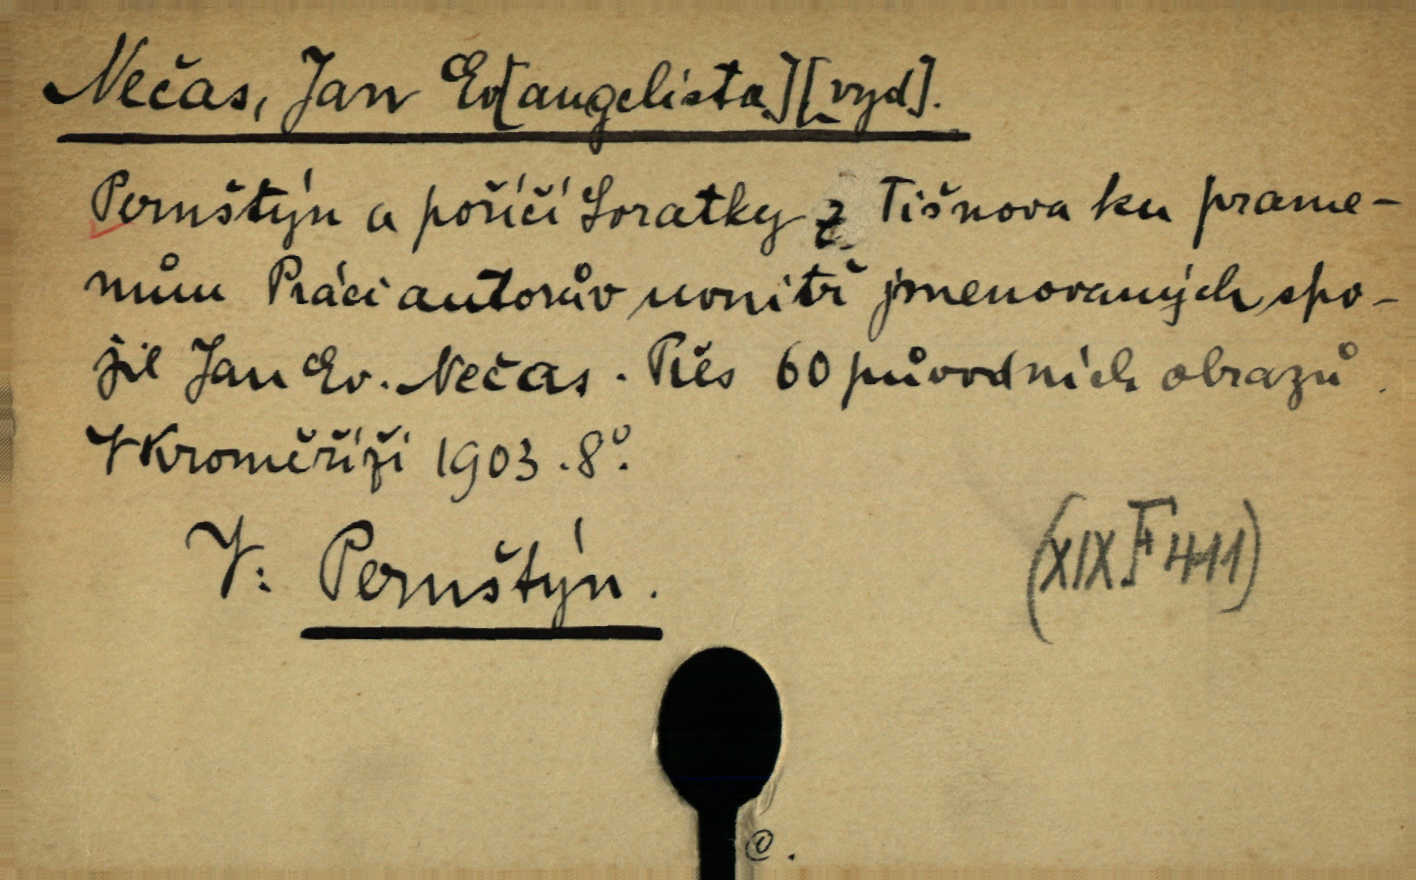 Nečas, Jan Ev[angelista] [vyd].
Pernštýn a poříčí Loratky z Tišnova ku prame-
nům Práci autorův uvnitř jmenovaných spo-
jil Jan Ev. Nečas. Přes 60 původních obrazů.
V Kroměříži 1903. 8°.
V: Pernštýn.
(XIX F 411)